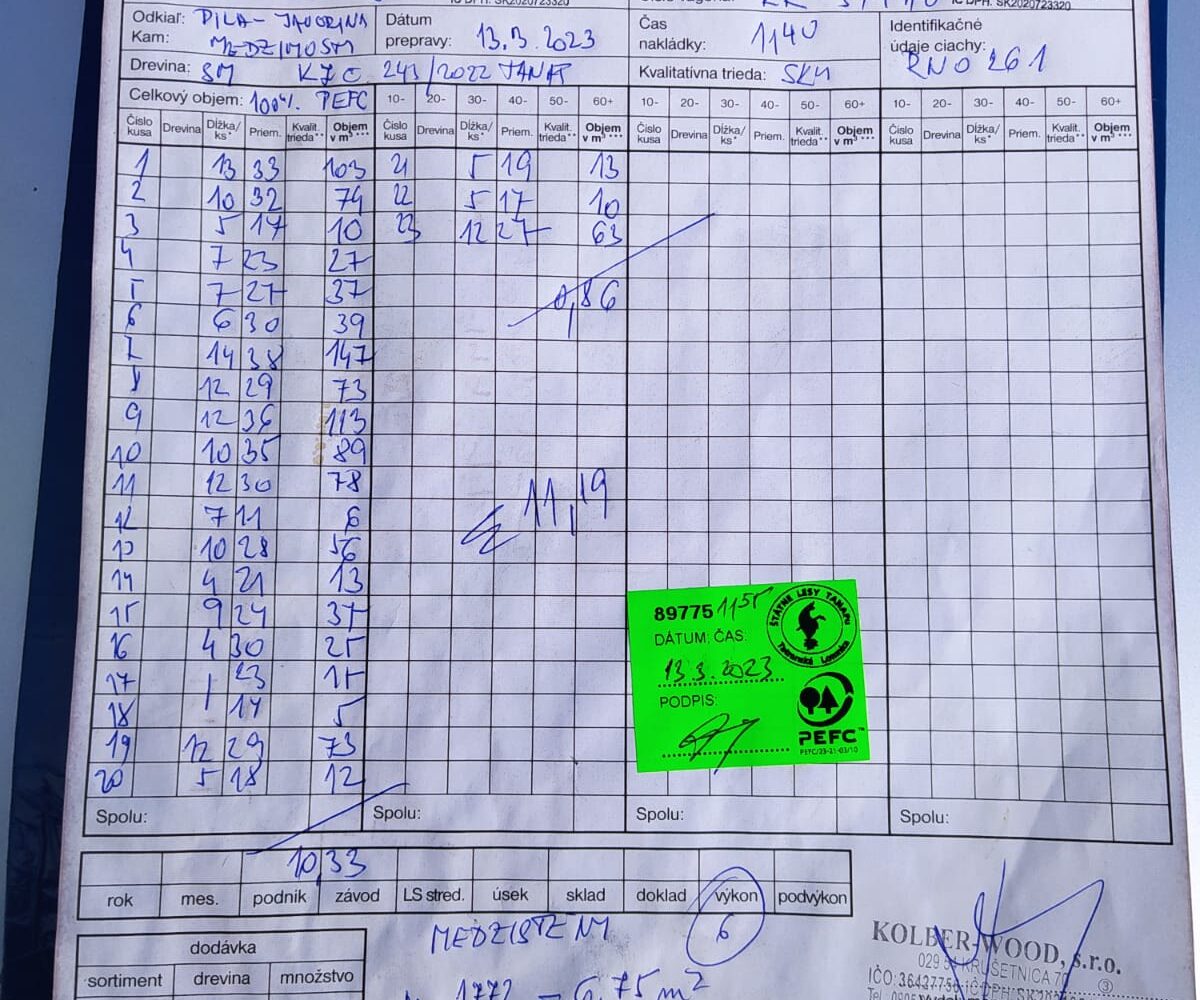 IČ DPH: SK2020723320
Odkiaľ: PILA-JAVORINA
Kam: MEDZIMOSTM
Dátum prepravy: 13.3.2023
Čas nakládky: 1140
Identifikačné údaje ciachy: RNO 261
Drevina: SM KZC 243/2022 TANAP
Kvalitatívna trieda: SKM
Celkový objem: 100% PEFC 10- 20- 30- 40- 50- 60+ 10- 20- 30- 40- 50- 60+ 10- 20- 30- 40- 50- 60+
Číslo kusa Drevina Dĺžka/ks* Priem. Kvalit. trieda** Objem v m³*** Číslo kusa Drevina Dĺžka/ks* Priem. Kvalit. trieda** Objem v m³*** Číslo kusa Drevina Dĺžka/ks* Priem. Kvalit. trieda** Objem v m³*** Číslo kusa Drevina Dĺžka/ks* Priem. Kvalit. trieda** Objem v m³***
1 13 33 103 21 5 19 13
2 10 32 74 22 5 17 10
3 5 17 10 23 12 27 63
4 7 23 27
5 7 27 37 0,86
6 6 30 39
7 14 38 147
8 12 29 73
9 12 36 113
10 10 35 89
11 12 30 78
11,19
12 7 11 6
13 10 28 56
14 4 21 13
15 9 24 37
16 4 30 25
17 23 15
18 14 5
19 12 29 73
20 5 18 12
89775 1155
ŠTÁTNE LESY TANAPU
Tatranská Lomnica
DÁTUM: ČAS:
13.3.2023
PODPIS:
PEFC™
PEFC/23-21-03/10
Spolu: Spolu: Spolu: Spolu:
10,33
rok mes. podnik závod LS stred. úsek sklad doklad výkon podvýkon
6
dodávka
sortiment drevina množstvo
1772 - 6,75 m²
KOLBER-WOOD, s.r.o.
KRUŠETNICA
IČO: 36437756 IČ DPH: SK